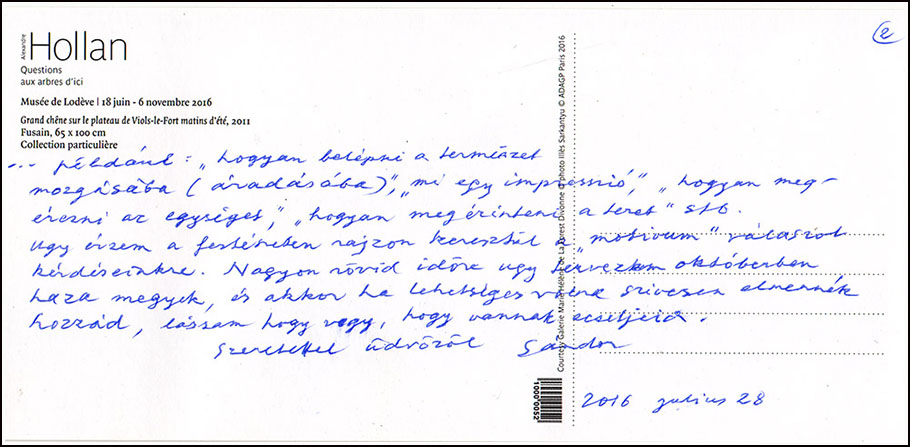 Alexandre
Hollan
Questions
aux arbres d'ici
Musée de Lodève | 18 juin - 6 novembre 2016
Grand chêne sur le plateau de Viols-le-Fort matins d'été, 2011
Fusain, 65 x 100 cm
Collection particulière
②
... például: „hogyan belépni a természet
mozgásába (áradásába)", „mi egy impresszió", „hogyan meg-
érezni az egységet", „hogyan megérinteni a teret" stb.
Ugy érzem a festésben rajzon keresztül a „motivum" válaszol
kérdéseinkre. Nagyon rövid időre ugy tervezem októberben
haza megyek, és akkor ha lehetséges volna szivesen elmennék
hozzád, lássam hogy vagy, hogy vannak ecsetjeid.
Szeretettel üdvözöl Sándor
2016 julius 28
Courtesy Galerie Marie Hélène de La Forest Divonne © photo Illés Sarkantyu © ADAGP Paris 2016
10000052